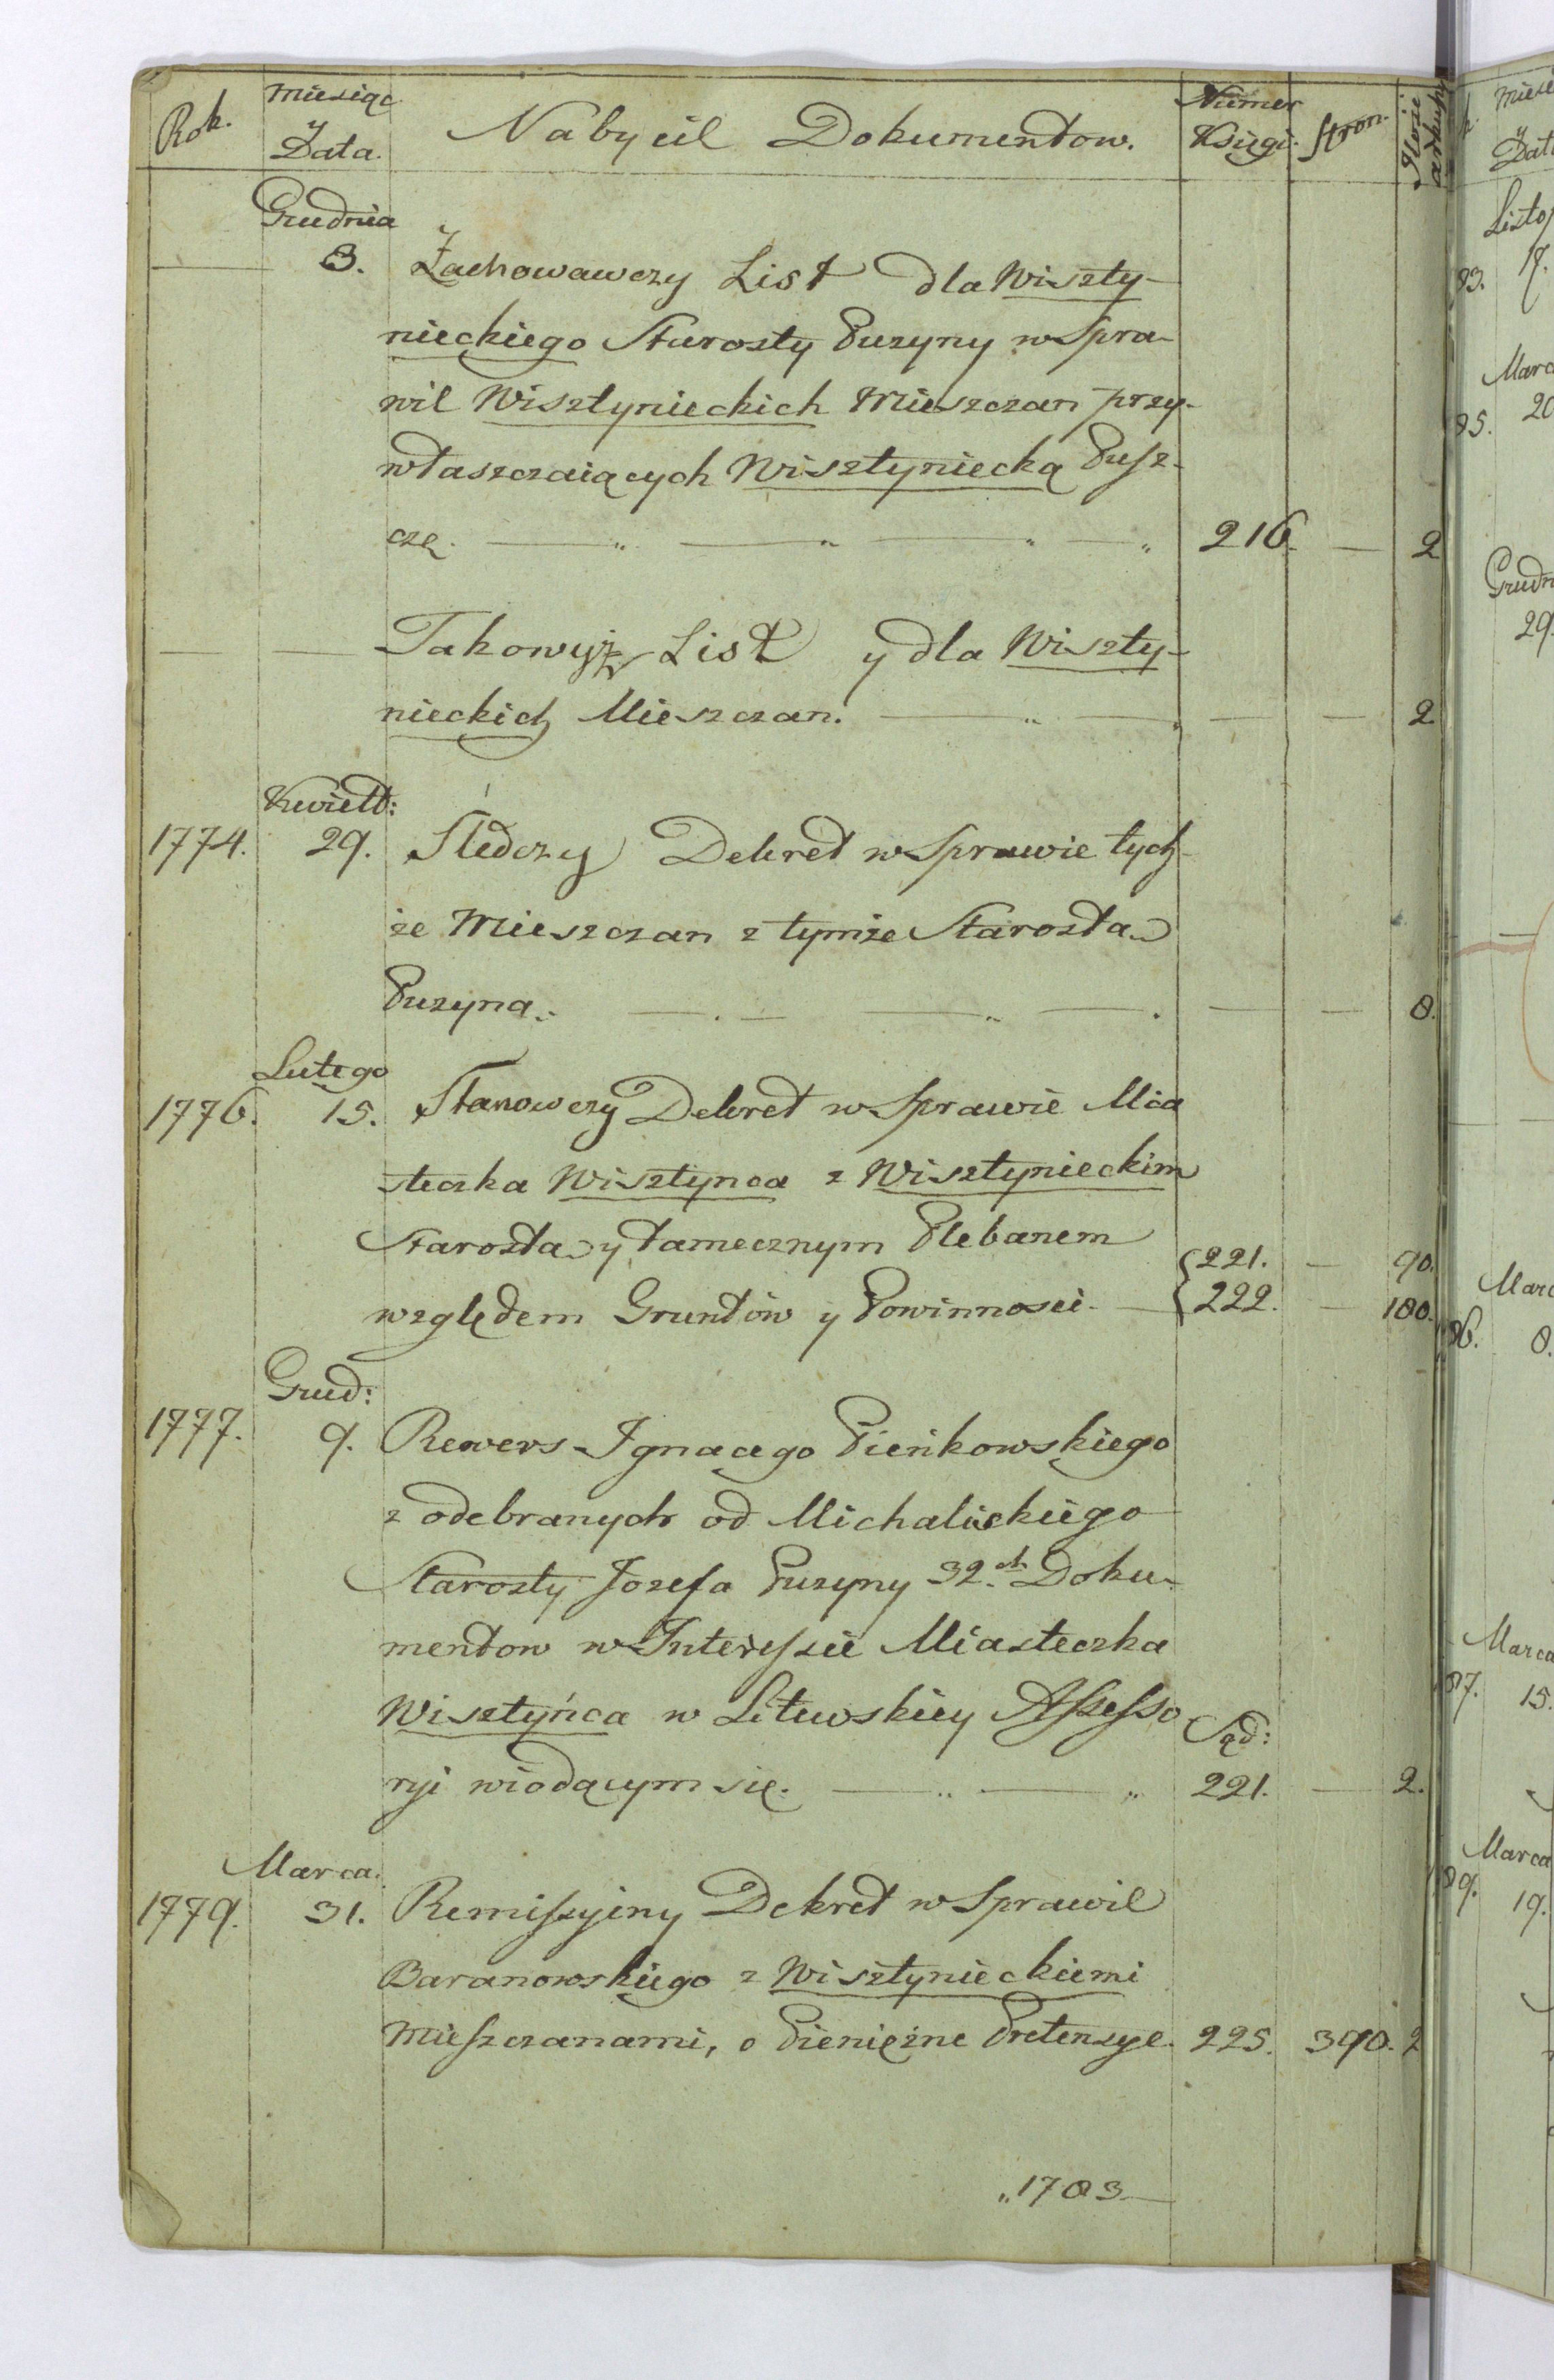 Rok. Miesiąc y Data. Nabycie Dokumentow. Numer Księgi. Stron. Ilość arkuszy
Grudnia
— 3. Zachowawczy List dla Wiszty-
nieckiego Starosty Puzyny w Spra-
wie Wisztynieckich Mieszczan przy-
właszczaiących Wisztyniecką Pusz-
czę. — „ — „ — „ — „ 216. — 2
— — Takowyż List y dla Wiszty-
nieckich Mieszczan. — „ — „ — — 2
Kwiet:
1774. 29. Śledczy Dekret w Sprawie tych-
że Mieszczan z tymże Starostą
Puzyną. — . — — „ — . — — 8.
Lutego
1776. 15. Stanowczy Dekret w Sprawie Mia
steczka Wisztynca z Wisztynieckim
Starostą y tamecznym Plebanem 221. — 90.
względem Gruntów y Powinności. — 222. — 100.
Grud:
1777. 9. Rewers Ignacego Pieńkowskiego
z odebranych od Michaliskiego
Starosty Jozefa Puzyny 32.ch Doku-
mentow w Interessie Miasteczka
Wisztyńca w Litewskiey Assesso
ryi wiodącym się. — „ — „ Sąd: 221. — 2.
Marca.
1779. 31. Remissyiny Dekret w Sprawie
Baranowskiego z Wisztynieckiemi
Mieszczanami, o Pieniężne Pretensye. 225. 390. 2
„1783—
Miesi
y
Data
Listop
83. 17.
Marca
85. 20
Grudn
29.
Marc
86. 8.
Marca
87. 15.
Marca
89. 19.